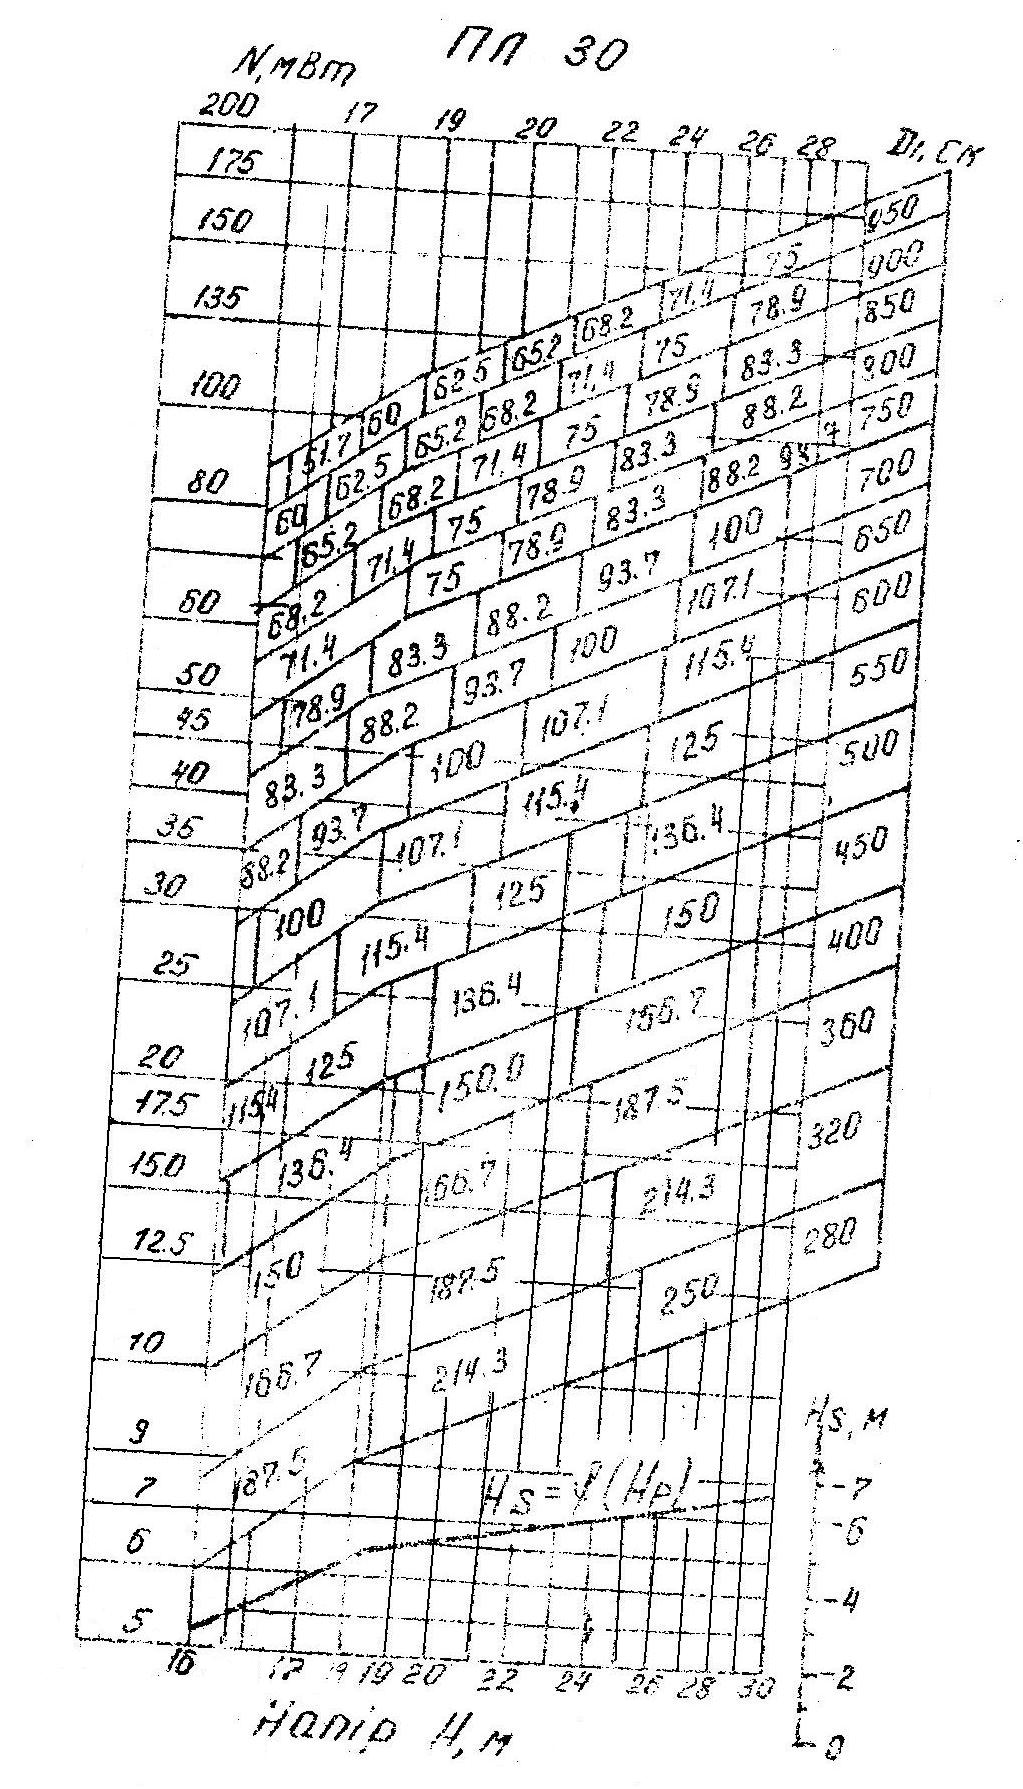 ПЛ 30
N, мВт
200 17 19 20 22 24 26 28 D1, см
175
150
135
100
80
60
50
45
40
35
30
25
20
17.5
15.0
12.5
10
9
7
6
5
950
51.7 60 62.5 65.2 68.2 71.4 75
900
60 62.5 65.2 68.2 71.4 75 78.9
850
65.2 68.2 71.4 75 78.9 83.3
800
68.2 71.4 75 78.9 83.3 88.2
750
71.4 75 78.9 83.3 88.2 93.7
700
78.9 83.3 88.2 93.7 100
650
83.3 88.2 93.7 100 107.1
600
88.2 93.7 100 107.1 115.4
550
100 107.1 115.4 125
500
107.1 115.4 125 136.4
450
115.4 125 136.4 150
400
136.4 150.0 166.7
360
150 166.7 187.5
320
166.7 187.5 214.3
280
187.5 214.3 250
Hs, м
7
6
4
2
0
Hs = φ (Hр)
16 17 19 20 22 24 26 28 30
Напір Н, м